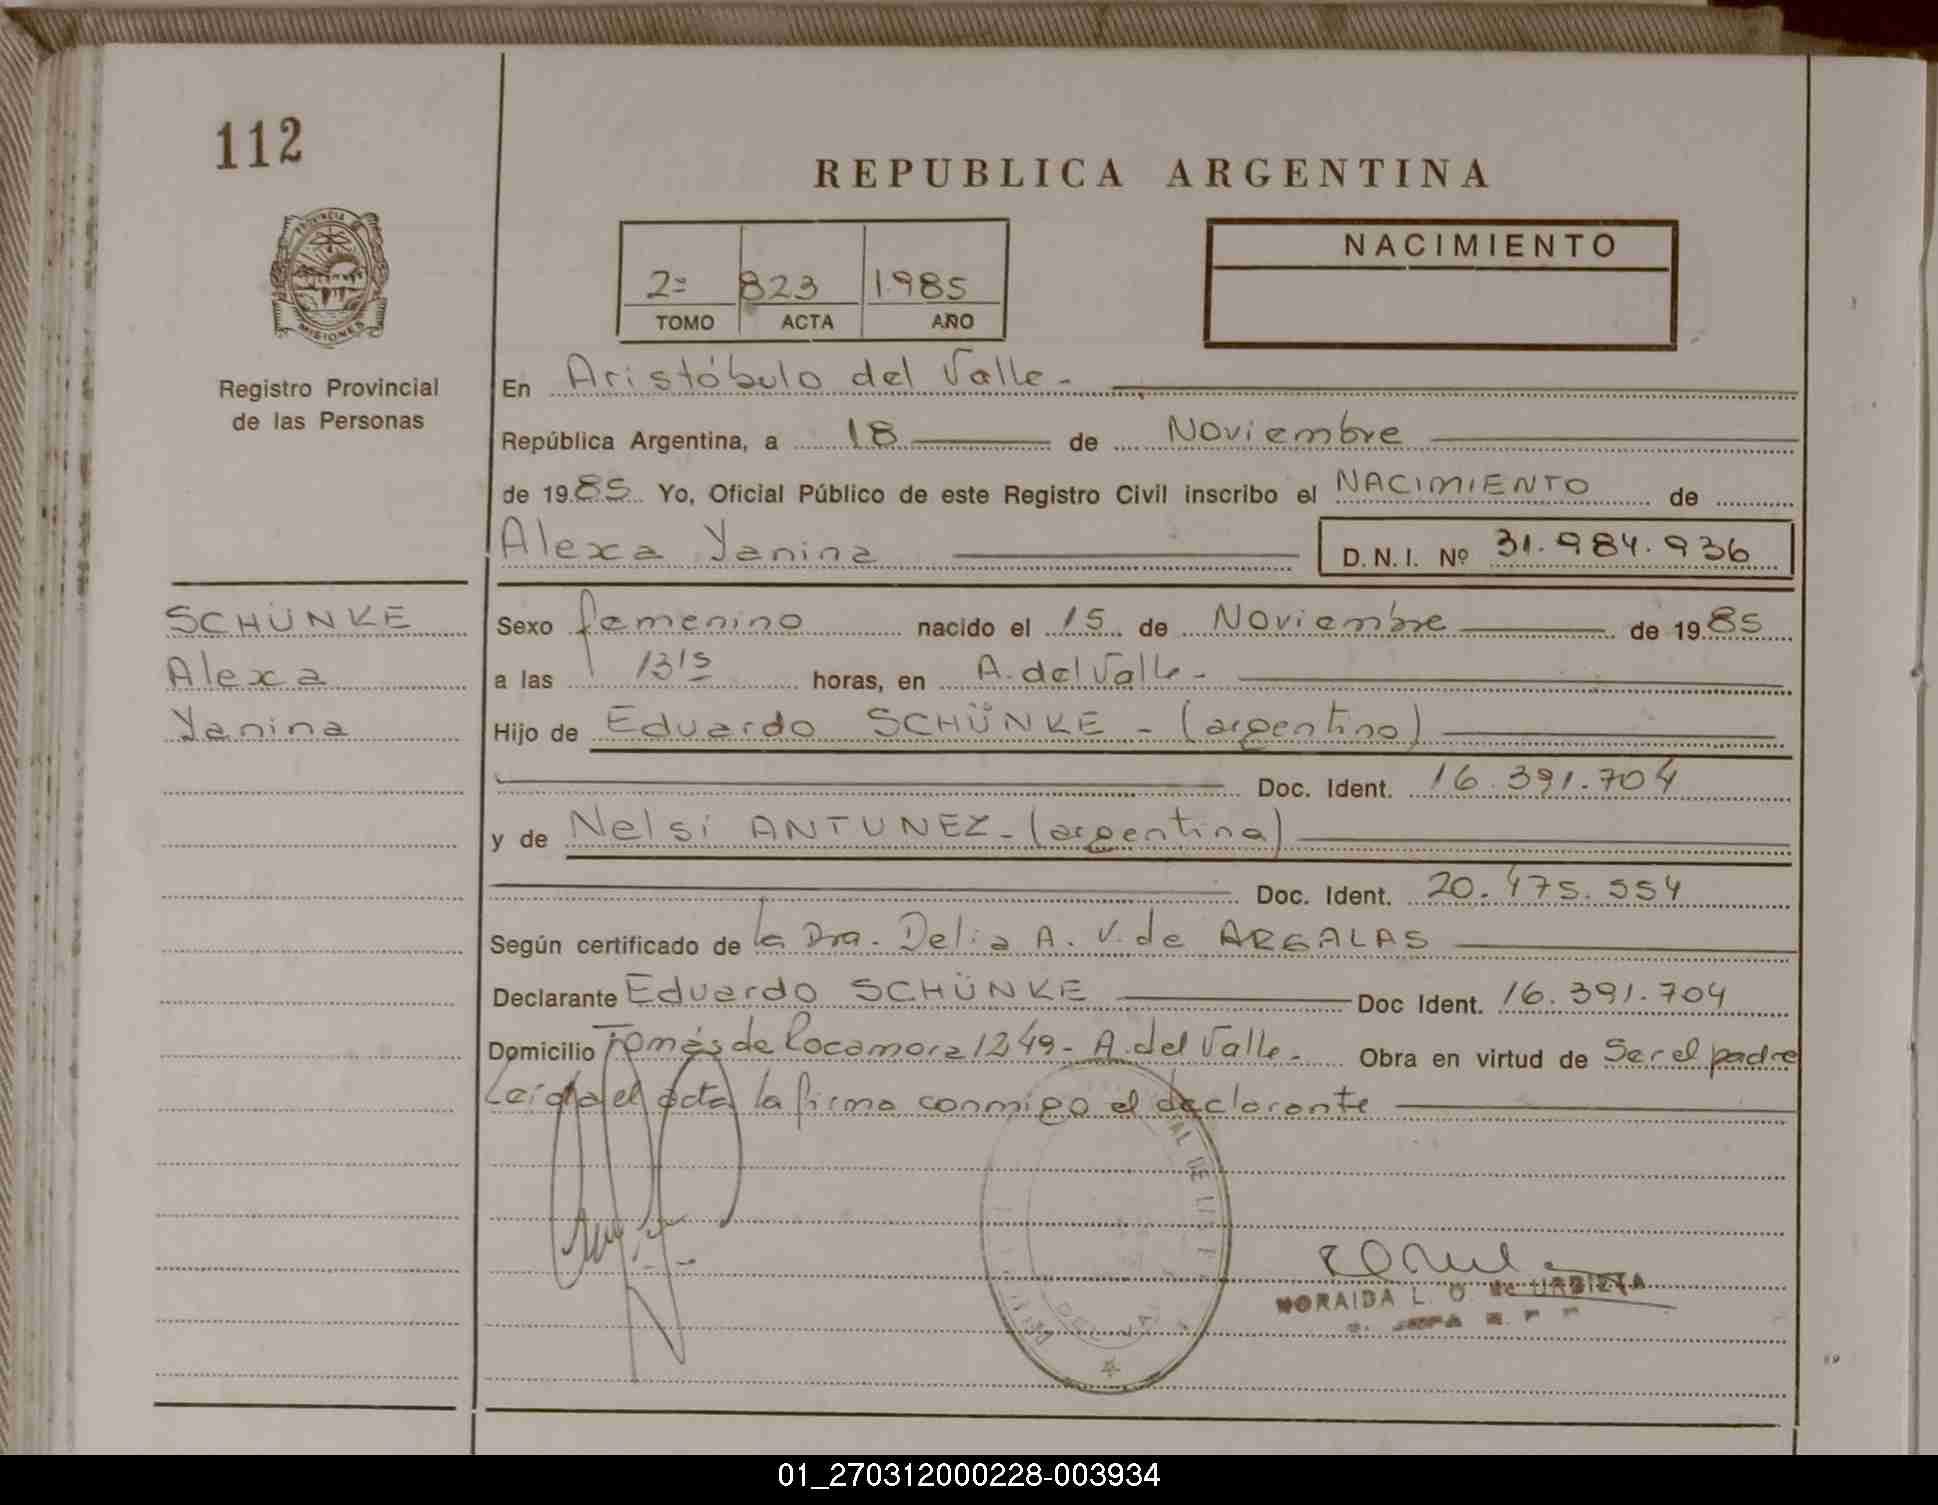 112
REPUBLICA ARGENTINA
PROVINCIA
MISIONES
Registro Provincial
de las Personas
NACIMIENTO
2º 823 1985
TOMO ACTA AÑO
En Aristóbulo del Valle -
República Argentina, a 18 de Noviembre
de 1985 Yo, Oficial Público de este Registro Civil inscribo el NACIMIENTO de
Alexa Yanina D.N.I. Nº 31.984.936
SCHÜNKE
Alexa
Yanina
Sexo femenino nacido el 15 de Noviembre de 1985
a las 13 15 horas, en A. del Valle -
Hijo de Eduardo SCHÜNKE - (argentino)
Doc. Ident. 16.391.704
y de Nelsi ANTUNEZ - (argentina)
Doc. Ident. 20.475.554
Según certificado de la Dra. Delia A. V. de ARGALAS
Declarante Eduardo SCHÜNKE Doc Ident. 16.391.704
Domicilio Tomás de Rocamora 1249 - A. del Valle - Obra en virtud de Ser el padre
Leída el acta la firma conmigo el declarante
NORAIDA L. O. de URBIETA
01_270312000228-003934